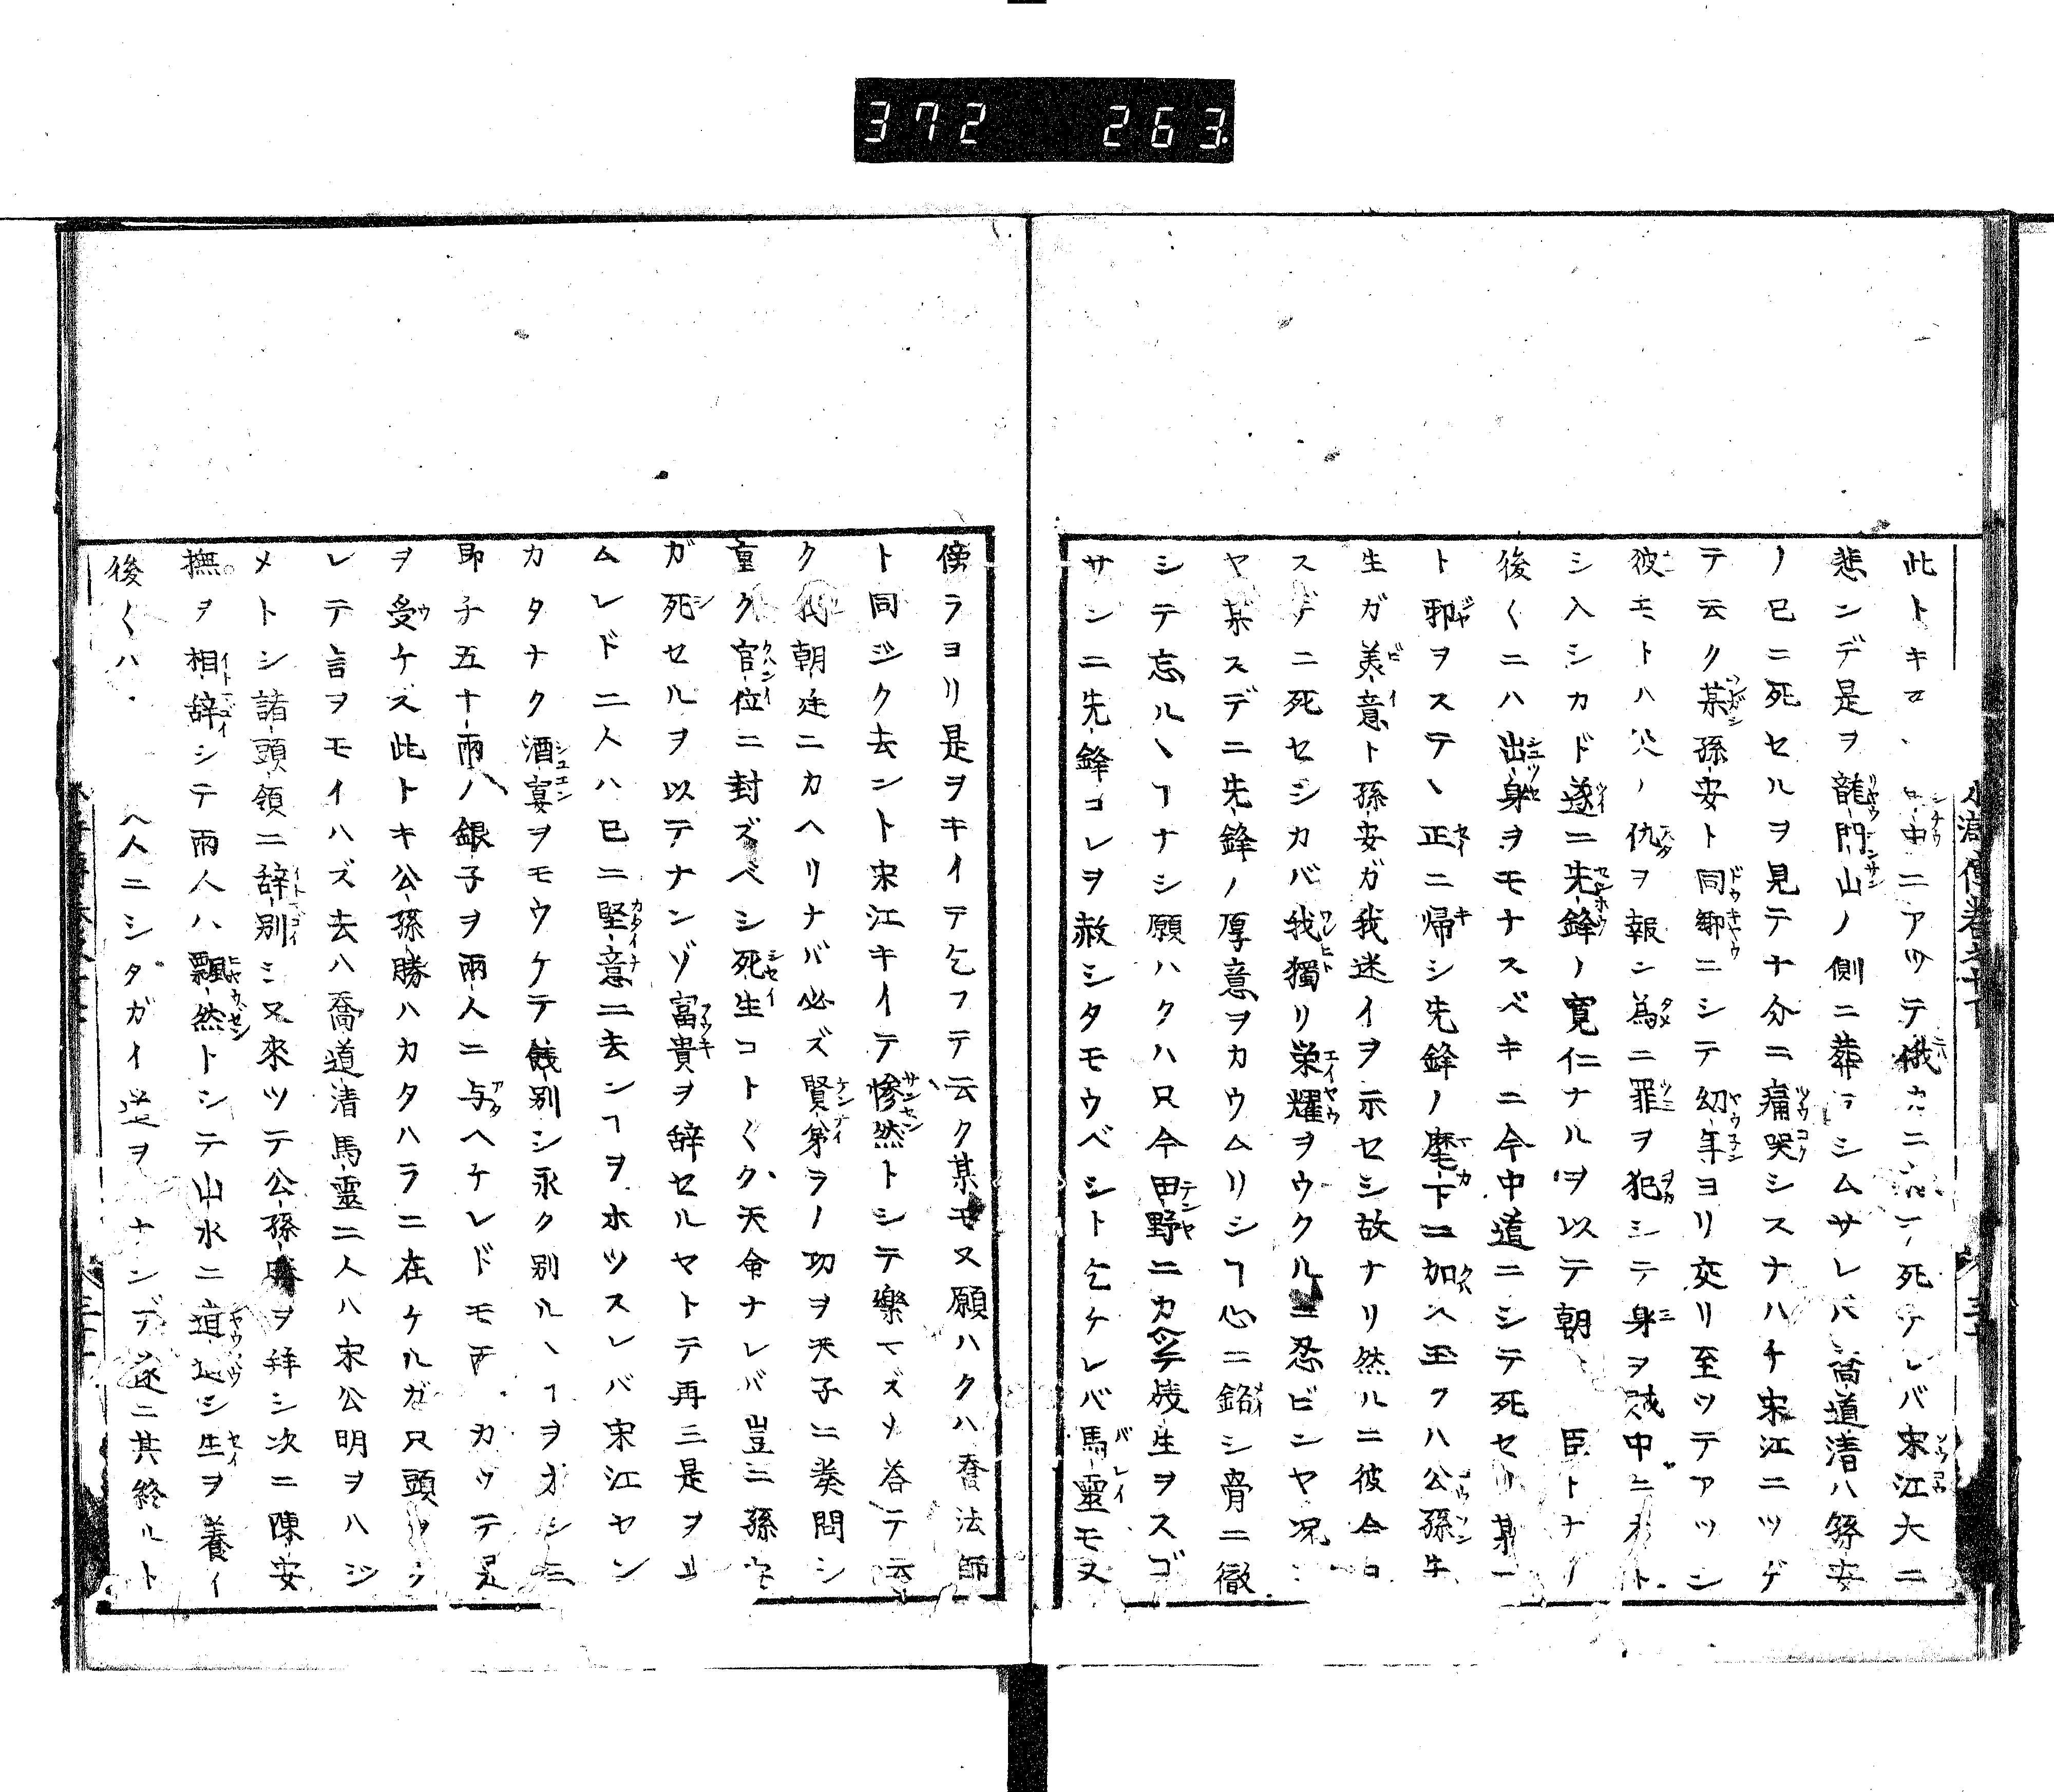 372 263
此トキ 中ニアツテ俄カニ 死ケレバ宋江大ニ
悲ンデ是ヲ龍門山ノ側ニ葬ラシムサレバ喬道清ハ孫安
ノ已ニ死セルヲ見テナ分ニ痛哭シスナハチ宋江ニツゲ
テ云ク某孫安ト同郷ニシテ幼年ヨリ交リ至ツテアツシ
彼モトハ父ノ仇ヲ報ン為ニ罪ヲ犯シテ身ヲ 中ニ
シ入シカド遂ニ先鋒ノ寛仁ナルヲ以テ朝 臣トナリ
後〱ニハ出身ヲモナスベキニ今中道ニシテ死セリ某
ト邪ヲステヽ正ニ帰シ先鋒ノ麾下ニ加ヘ玉フハ公孫
生ガ美意ト孫安ガ我迷イヲ示セシ故ナリ然ルニ彼今
スデニ死セシカバ我獨リ栄耀ヲウクルニ忍ビンヤ况
ヤ某スデニ先鋒ノ厚意ヲカウムリシヿ心ニ銘シ骨ニ徹
シテ忘ルヽヿナシ願ハクハ只今田野ニカ 残生ヲスゴ
サンニ先鋒コレヲ赦シタモウベシト乞ケレバ馬靈モ又
傍ラヨリ是ヲキイテ乞フテ云ク某モ又願ハクハ喬法師
ト同ジク去ント宋江キイテ惨然トシテ樂マズ 答テ云
ク 朝廷ニカヘリナバ必ズ賢弟ラノ功ヲ天子ニ奏問シ
重ク官位ニ封ズベシ死生コト〱ク天命ナレバ豈ニ孫安
ガ死セルヲ以テナンゾ富貴ヲ辞セルヤトテ再三是ヲ止
ムレド二人ハ已ニ堅意ニ去ンヿヲホツスレバ宋江ヤン
カタナク酒宴ヲモウケテ餞別シ永ク別ルヽヿヲオシミ
即チ五十両ノ銀子ヲ両人ニ与ヘケレドモ カツテ是
ヲ受ケズ此トキ公孫勝ハカタハラニ在ケルガ只頭ヲ
レテ言ヲモイハズ去ハ喬道清馬靈二人ハ宋公明ヲハジ
メトシ諸頭領ニ辞別シ又來ツテ公孫勝ヲ拜シ次ニ陳安
撫ヲ相辞シテ両人ハ飄然トシテ山水ニ シ生ヲ養イ
後〱ハ 人ニシタガイ ヲナンデ遂ニ其終ルト